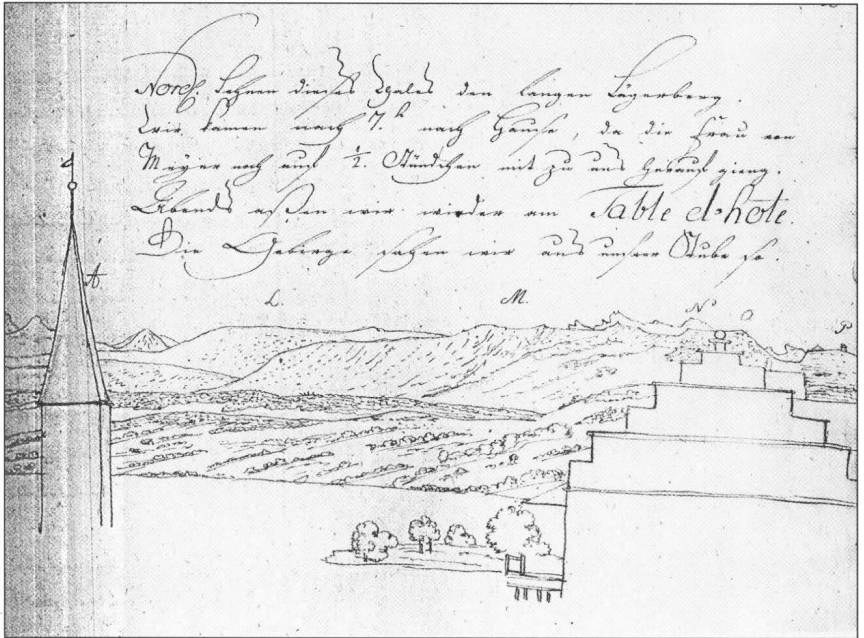 Nördl. Lehnen dieses Thales den langen Lägerberg.
Wir kamen nach 7.h nach Hause, da die Frau von
Meyer noch auf 1/2. Stündchen mit zu uns herauf gieng.
Abends aßen wir wieder am Table d'hôte.
Die Gebirge sahen wir aus unsrer Stube so.
A.
L. M. N O P